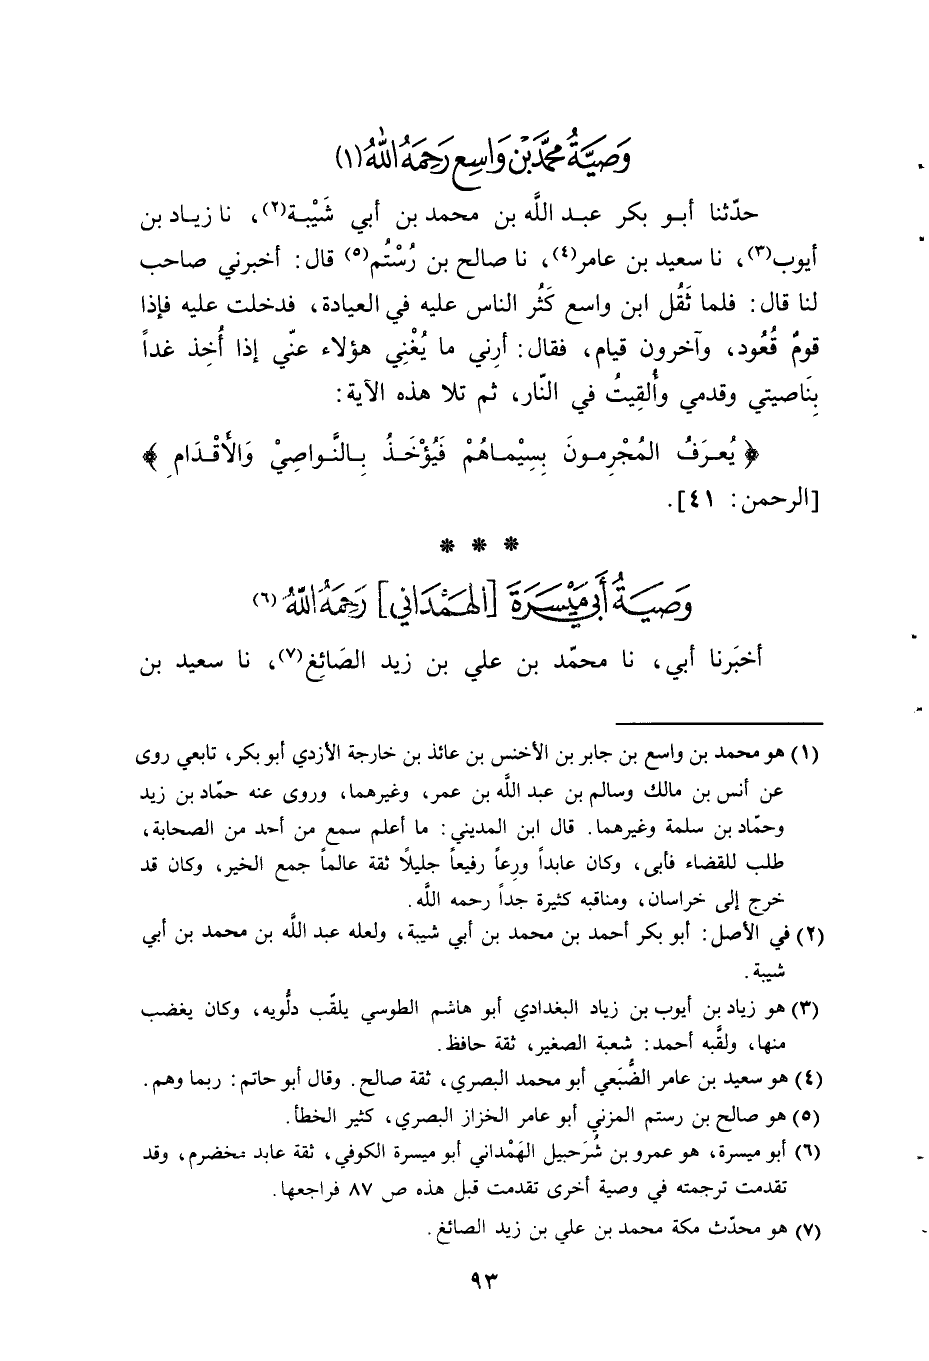 وَصِيَّةُ مُحَمَّد بْن وَاسِع رَحِمَهُ اللهُ (١)
حدّثنا أبو بكر عبد اللَّه بن محمد بن أبي شَيْبة(٢)، نا زياد بن
أيوب(٣)، نا سعيد بن عامر(٤)، نا صالح بن رُسْتُم(٥) قال: أخبرني صاحب
لنا قال: فلما ثَقُل ابن واسع كَثُر الناس عليه في العيادة، فدخلت عليه فإذا
قومٌ قُعُود، وآخرون قيام، فقال: أرِني ما يُغْنِي هؤلاء عنّي إذا أُخِذ غداً
بِنَاصيتي وقدمي وأُلقِيتُ في النّار، ثم تلا هذه الآية:
﴿يُعرَفُ المُجْرِمونَ بِسِيْماهُمْ فَيُؤْخَذُ بِالنَّواصِيْ وَالأَقْدَامِ﴾
[الرحمن: ٤١].
* * *
وَصِيَّةُ أَبِي مَيْسَرَةَ [الهَمْدَاني] رَحِمَهُ اللهُ (٦)
أخبَرنا أبي، نا محمّد بن علي بن زيد الصَائِغ(٧)، نا سعيد بن
(١) هو محمد بن واسع بن جابر بن الأخنس بن عائذ بن خارجة الأزدي أبو بكر، تابعي روى
عن أنس بن مالك وسالم بن عبد اللَّه بن عمر، وغيرهما، وروى عنه حمّاد بن زيد
وحمّاد بن سلمة وغيرهما. قال ابن المديني: ما أعلم سمع من أحد من الصحابة،
طلب للقضاء فأبى، وكان عابداً ورِعاً رفيعاً جليلًا ثقة عالماً جمع الخير، وكان قد
خرج إلى خراسان، ومناقبه كثيرة جداً رحمه اللَّه.
(٢) في الأصل: أبو بكر أحمد بن محمد بن أبي شيبة، ولعله عبد اللَّه بن محمد بن أبي
شيبة.
(٣) هو زياد بن أيوب بن زياد البغدادي أبو هاشم الطوسي يلقّب دلُّويه، وكان يغضب
منها، ولقَّبه أحمد: شعبة الصغير، ثقة حافظ.
(٤) هو سعيد بن عامر الضُّبَعي أبو محمد البصري، ثقة صالح. وقال أبو حاتم: ربما وهم.
(٥) هو صالح بن رستم المزني أبو عامر الخزاز البصري، كثير الخطأ.
(٦) أبو ميسرة، هو عمرو بن شُرَحبيل الهَمْداني أبو ميسرة الكوفي، ثقة عابد مخضرم، وقد
تقدمت ترجمته في وصية أخرى تقدمت قبل هذه ص ٨٧ فراجعها.
(٧) هو محدّث مكة محمد بن علي بن زيد الصائغ.
٩٣